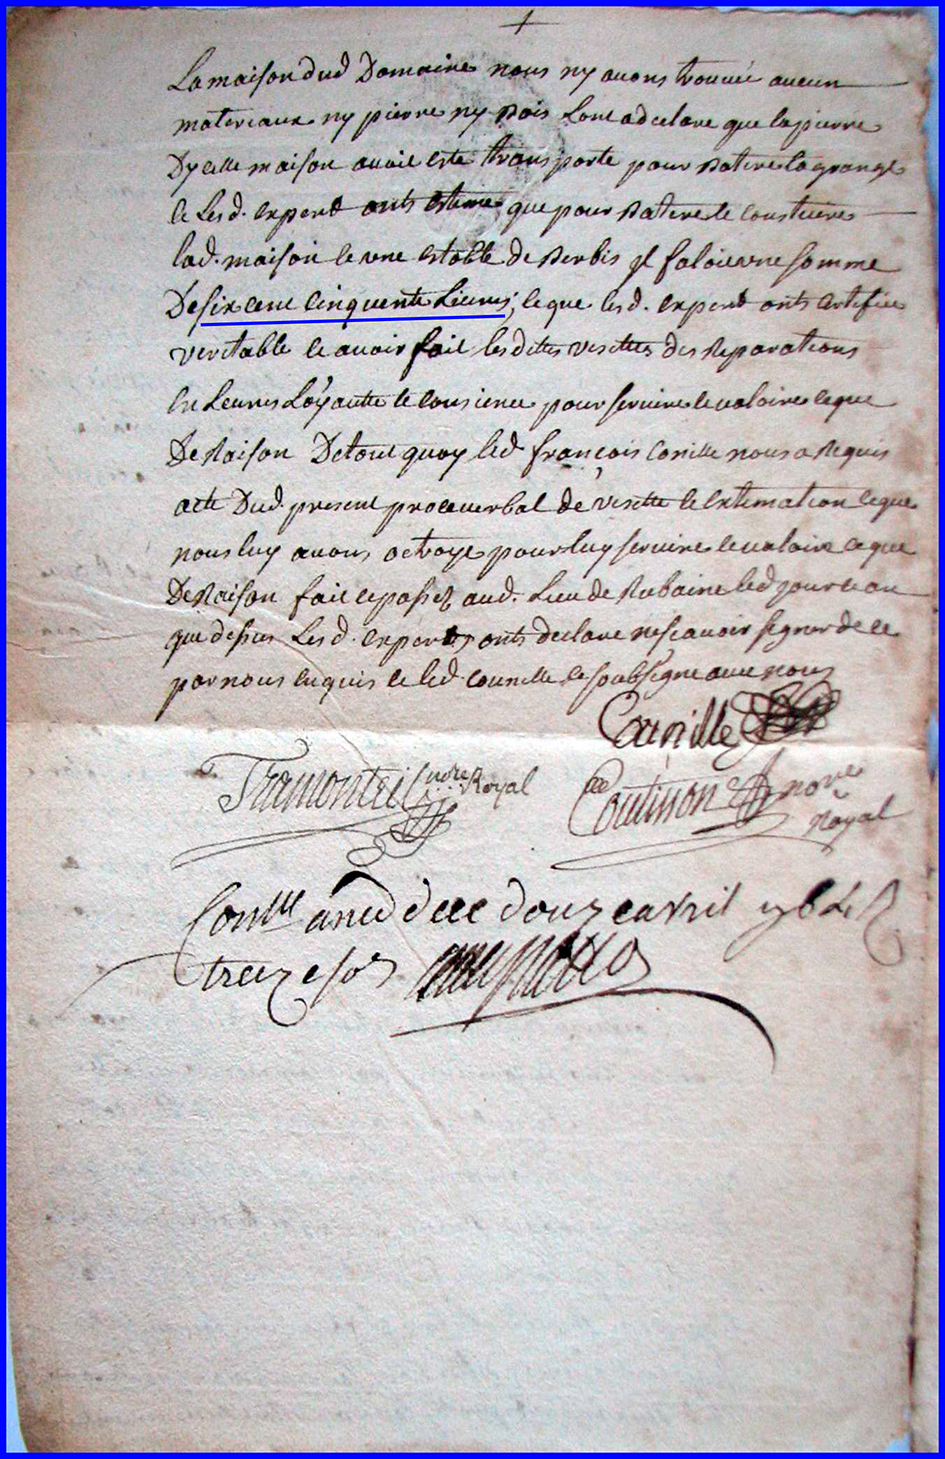 La maison dud Domaine nous ny avons trouvé aucun
materiaux ny pierre ny bois L'on a declare que la pierre
Dycelle maison avoit esté transporte pour batire la grange
et Lesd. expert onts estime que pour batire et construire
lad. maison et une estable de Berbis yl faloit une somme
De six cent cinquente Livres, ce que lesd. expert onts certifié
veritable et avoir fait lesdittes visittes des Reparations
En Leurs Loyautte et consience pour servire et valoire ce que
De Raison De tout quoy led françois Conille nous a Requis
acte Dud. present proceverbal de visitte et Estimation ce que
nous luy avons octroye pour luy servire et valoire ce que
De Raison fait et passé aud. Lieu de led jour et an
que dessus Lesd. experts onts declare ne scavoir signer de ce
par nous enquis et led. counille et soubsigne avec nous
Counille
Tramonteil no.re Royal Coutinon nor.e
Royal
Con.lle a le douze avril
treize sos